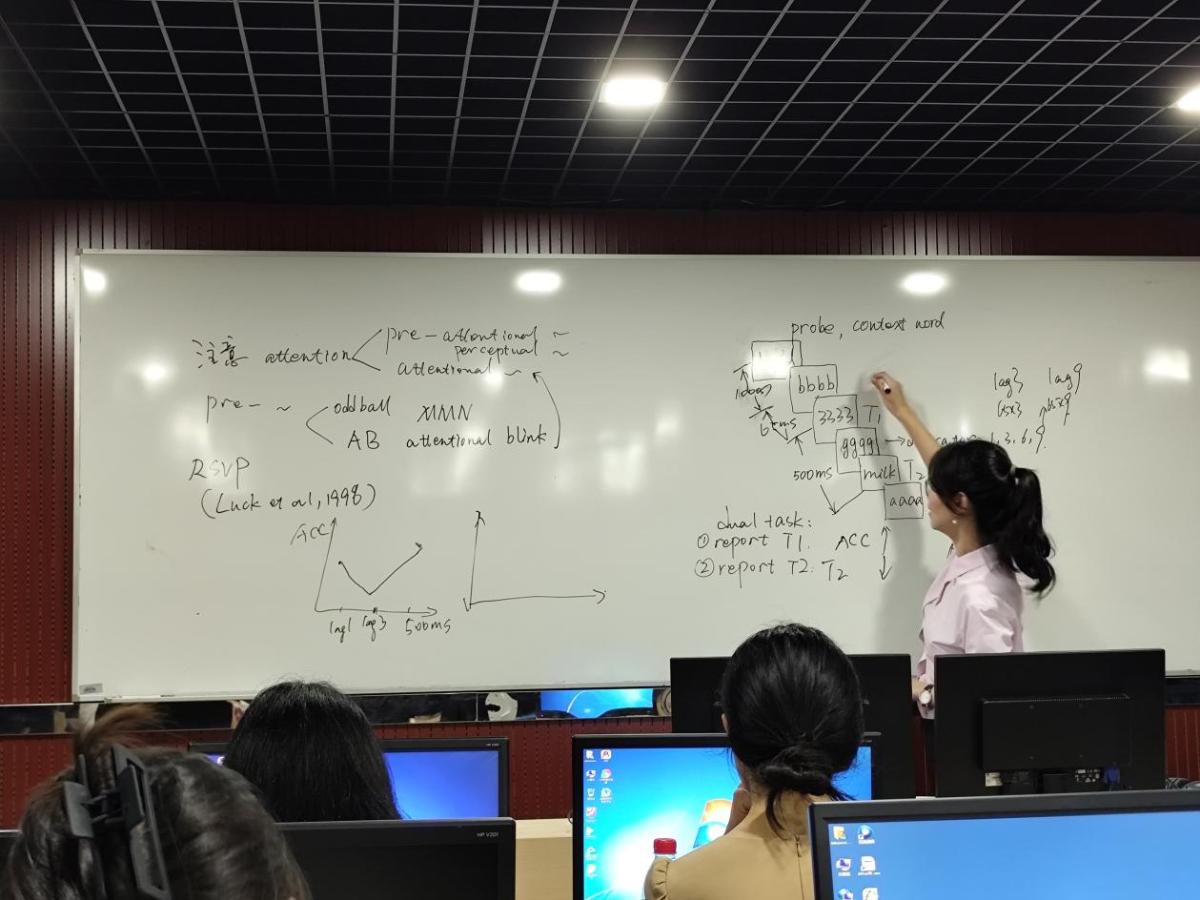 注意 attention
pre-attentional ~
perceptual ~
attentional ~
pre- ~
oddball MMN
AB attentional blink
RSVP
(Luck et al, 1998)
ACC
lag1 lag3 500ms
probe, context word
bbbb
3333 T1
gggg
milk T2
aaaa
500ms
lag3 lag9
dual task:
① report T1. ACC
② report T2: T2
HP V201